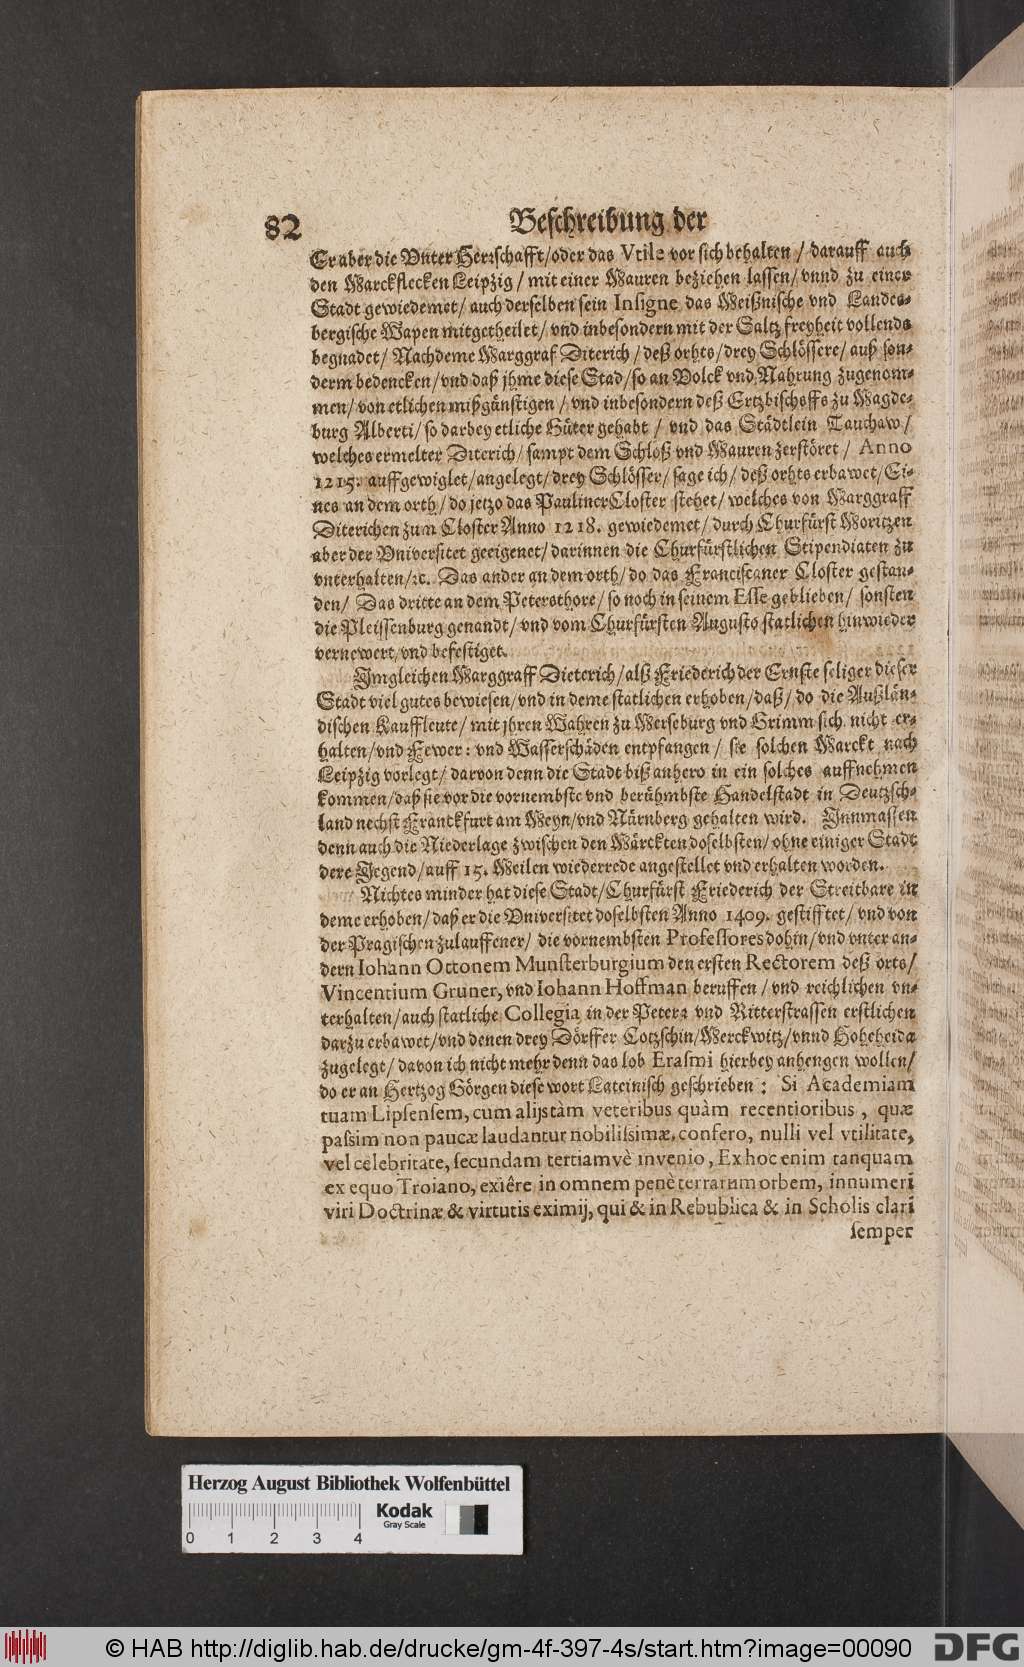 82 Beschreibung der
Er aber die Vnter Herrschafft/oder das Vtile vor sich behalten / darauff auch
den Marckflecken Leipzig / mit einer Mauren beziehen lassen/ vnnd zu einer
Stadt gewiedemet/ auch derselben sein Insigne das Meißnische vnd Landes-
bergische Wapen mitgetheilet/ vnd inbesondern mit der Saltz freyheit vollends
begnadet/ Nachdeme Marggraf Diterich / deß orhts/ drey Schlössere/ auß son-
derm bedencken/ vnd daß jhme diese Stad/ so an Volck vnd Nahrung zugenom-
men/ von etlichen mißgünstigen / vnd inbesondern deß Ertzbischoffs zu Magde-
burg Alberti/ so darbey etliche Hüter gehabt / vnd das Städtlein Tauchaw/
welches ermelter Diterich/ sampt dem Schloß vnd Mauren zerstöret / Anno
1215. auffgewiglet/ angelegt/ drey Schlösser/ sage ich/ deß orhts erbawet/ Ei-
nes an dem orth/ do jetzo das Pauliner Closter stehet/ welches von Marggraff
Diterichen zum Closter Anno 1218. gewiedemet/ durch Churfürst Moritzen
aber der Vniversitet geeigenet/ darinnen die Churfürstlichen Stipendiaten zu
vnterhalten/ ꝛc. Das ander an dem orth/ do das Franciscaner Closter gestan-
den/ Das dritte an dem Petersthore/ so noch in seinem Esse geblieben/ sonsten
die Pleissenburg genandt/ vnd vom Churfürsten Augusto statlichen hinwieder
vernewert/ vnd befestiget.
Imgleichen Marggraff Dieterich/ alß Friederich der Ernste seliger dieser
Stadt viel gutes bewiesen/ vnd in deme statlichen erhoben/ daß/ do die Außlän-
dischen Kauffleute/ mit jhren Wahren zu Merseburg vnd Grimm sich nicht er-
halten/ vnd Fewer: vnd Wasserschäden entpfangen / sie solchen Marckt nach
Leipzig vorlegt/ darvon denn die Stadt biß anhero in ein solches auffnehmen
kommen/ daß sie vor die vornembste vnd berühmbste Handelstadt in Deutzsch-
land nechst Franckfurt am Meyn/ vnd Nürnberg gehalten wird. Innmassen
denn auch die Niederlage zwischen den Märckten doselbsten/ ohne einiger Stadt
dere Jegend/ auff 15. Meilen wiederrede angestellet vnd erhalten worden.
Nichtes minder hat diese Stadt/ Churfürst Friederich der Streitbare in
deme erhoben/ daß er die Vniversitet doselbsten Anno 1409. gestifftet/ vnd von
der Pragischen zulauffener/ die vornembsten Professores dohin/ vnd vnter an-
dern Iohann Ottonem Munsterburgium den ersten Rectorem deß orts/
Vincentium Gruner, vnd Iohann Hoffman beruffen / vnd reichlichen vn-
terhalten/ auch statliche Collegia in der Peters vnd Ritterstrassen erstlichen
darzu erbawet/ vnd denen drey Dörffer Cotzschin/ Merckwitz/ vnnd Hoheheida
zugelegt/ davon ich nicht mehr denn das lob Erasmi hierbey anhengen wollen/
do er an Hertzog Görgen diese wort Lateinisch geschrieben: Si Academiam
tuam Lipsensem, cum alijs tàm veteribus quàm recentioribus, quæ
passim non paucæ laudantur nobilissimæ, confero, nulli vel vtilitate,
vel celebritate, secundam tertiamvè invenio, Ex hoc enim tanquam
ex equo Troiano, exiêre in omnem penè terrarum orbem, innumeri
viri Doctrinæ & virtutis eximij, qui & in Rebublica & in Scholis clari
semper
Herzog August Bibliothek Wolfenbüttel
Kodak
Gray Scale
0 1 2 3 4
© HAB http://diglib.hab.de/drucke/gm-4f-397-4s/start.htm?image=00090 DFG